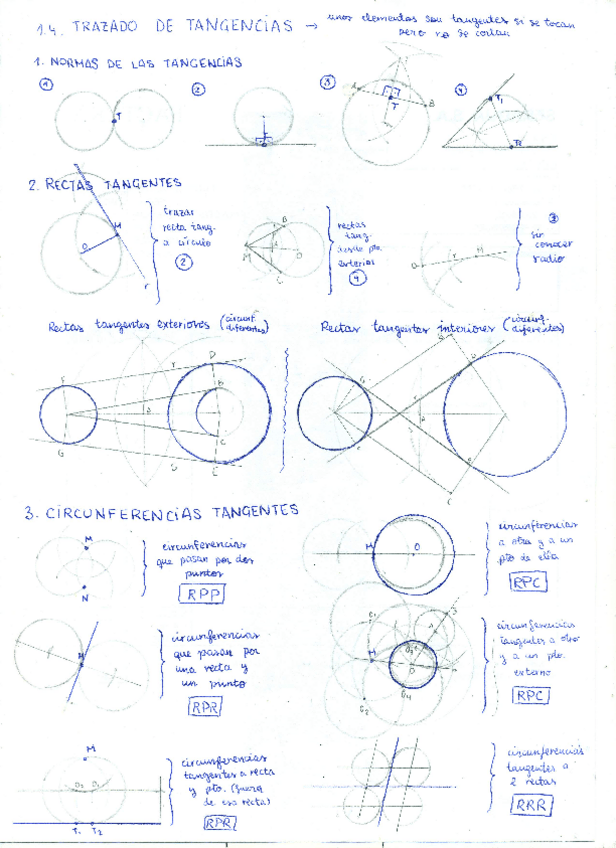 1.4. TRAZADO DE TANGENCIAS → unos elementos son tangentes si se tocan
pero no se cortan
1. NORMAS DE LAS TANGENCIAS
1
T
2
3
A
T
B
4
T1
T2
2. RECTAS TANGENTES
M
O
r
trazar
recta tang.
a círculo
2
B
M
A
O
C
rectas
tang.
desde pto
exterior
4
O
M
3
sin
conocer
radio
Rectas tangentes exteriores (circunf. diferentes)
Rectas tangentes interiores (circunf. diferentes)
F
r
D
B
A
C
G
s
E
3. CIRCUNFERENCIAS TANGENTES
M
N
circunferencias
que pasan por dos
puntos
RPP
M
O
circunferencias
a otra y a un
pto de ella
RPC
M
circunferencias
que pasan por
una recta y
un punto
RPR
M
O
circunferencias
tangentes a otra
y a un pto.
externo
RPC
M
O2 O1
T1 T2
circunferencias
tangentes a recta
y pto. (fuera
de esa recta)
RPR
circunferencias
tangentes a
2 rectas
RRR